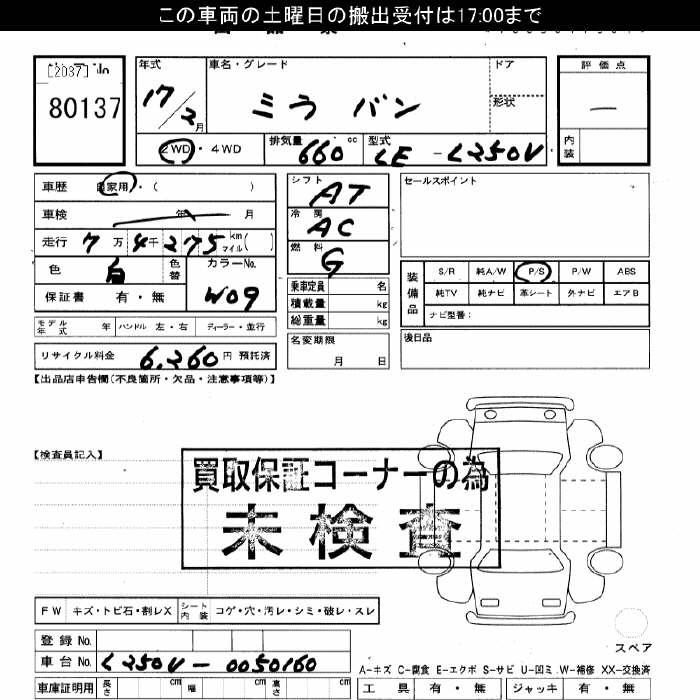 この車両の土曜日の搬出受付は17:00まで
[2037]
80137
年式
17/2月
車名・グレード
ミラ バン
ドア
形状
評価点
―
内装
2WD・4WD
排気量 660 cc
型式 LE - L250V
車歴 自家用・( )
車検 年 月
走行 7万4千275 km マイル( )
色 白 色替
カラーNo. W09
保証書 有・無
シフト AT
冷房 AC
燃料 G
乗車定員 名
積載量 kg
総重量 kg
セールスポイント
装備品
S/R 純A/W P/S P/W ABS
純TV 純ナビ 革シート 外ナビ エアB
ナビ型番:
モデル年式 年 ハンドル 左・右 ディーラー・並行
リサイクル料金 6,260 円 預託済
名変期限 月 日
後日品
【出品店申告欄(不良箇所・欠品・注意事項等)】
【検査員記入】
買取保証コーナーの為
未検査
FW キズ・トビ石・割レX シート内装 コゲ・穴・汚レ・シミ・破レ・スレ
スペア
登録No.
車台No. L250V-0050160
A-キズ C-腐食 E-エクボ S-サビ U-凹ミ W-補修 XX-交換済
車庫証明用 長さ cm 幅 cm 高さ cm
工具 有・無 ジャッキ 有・無